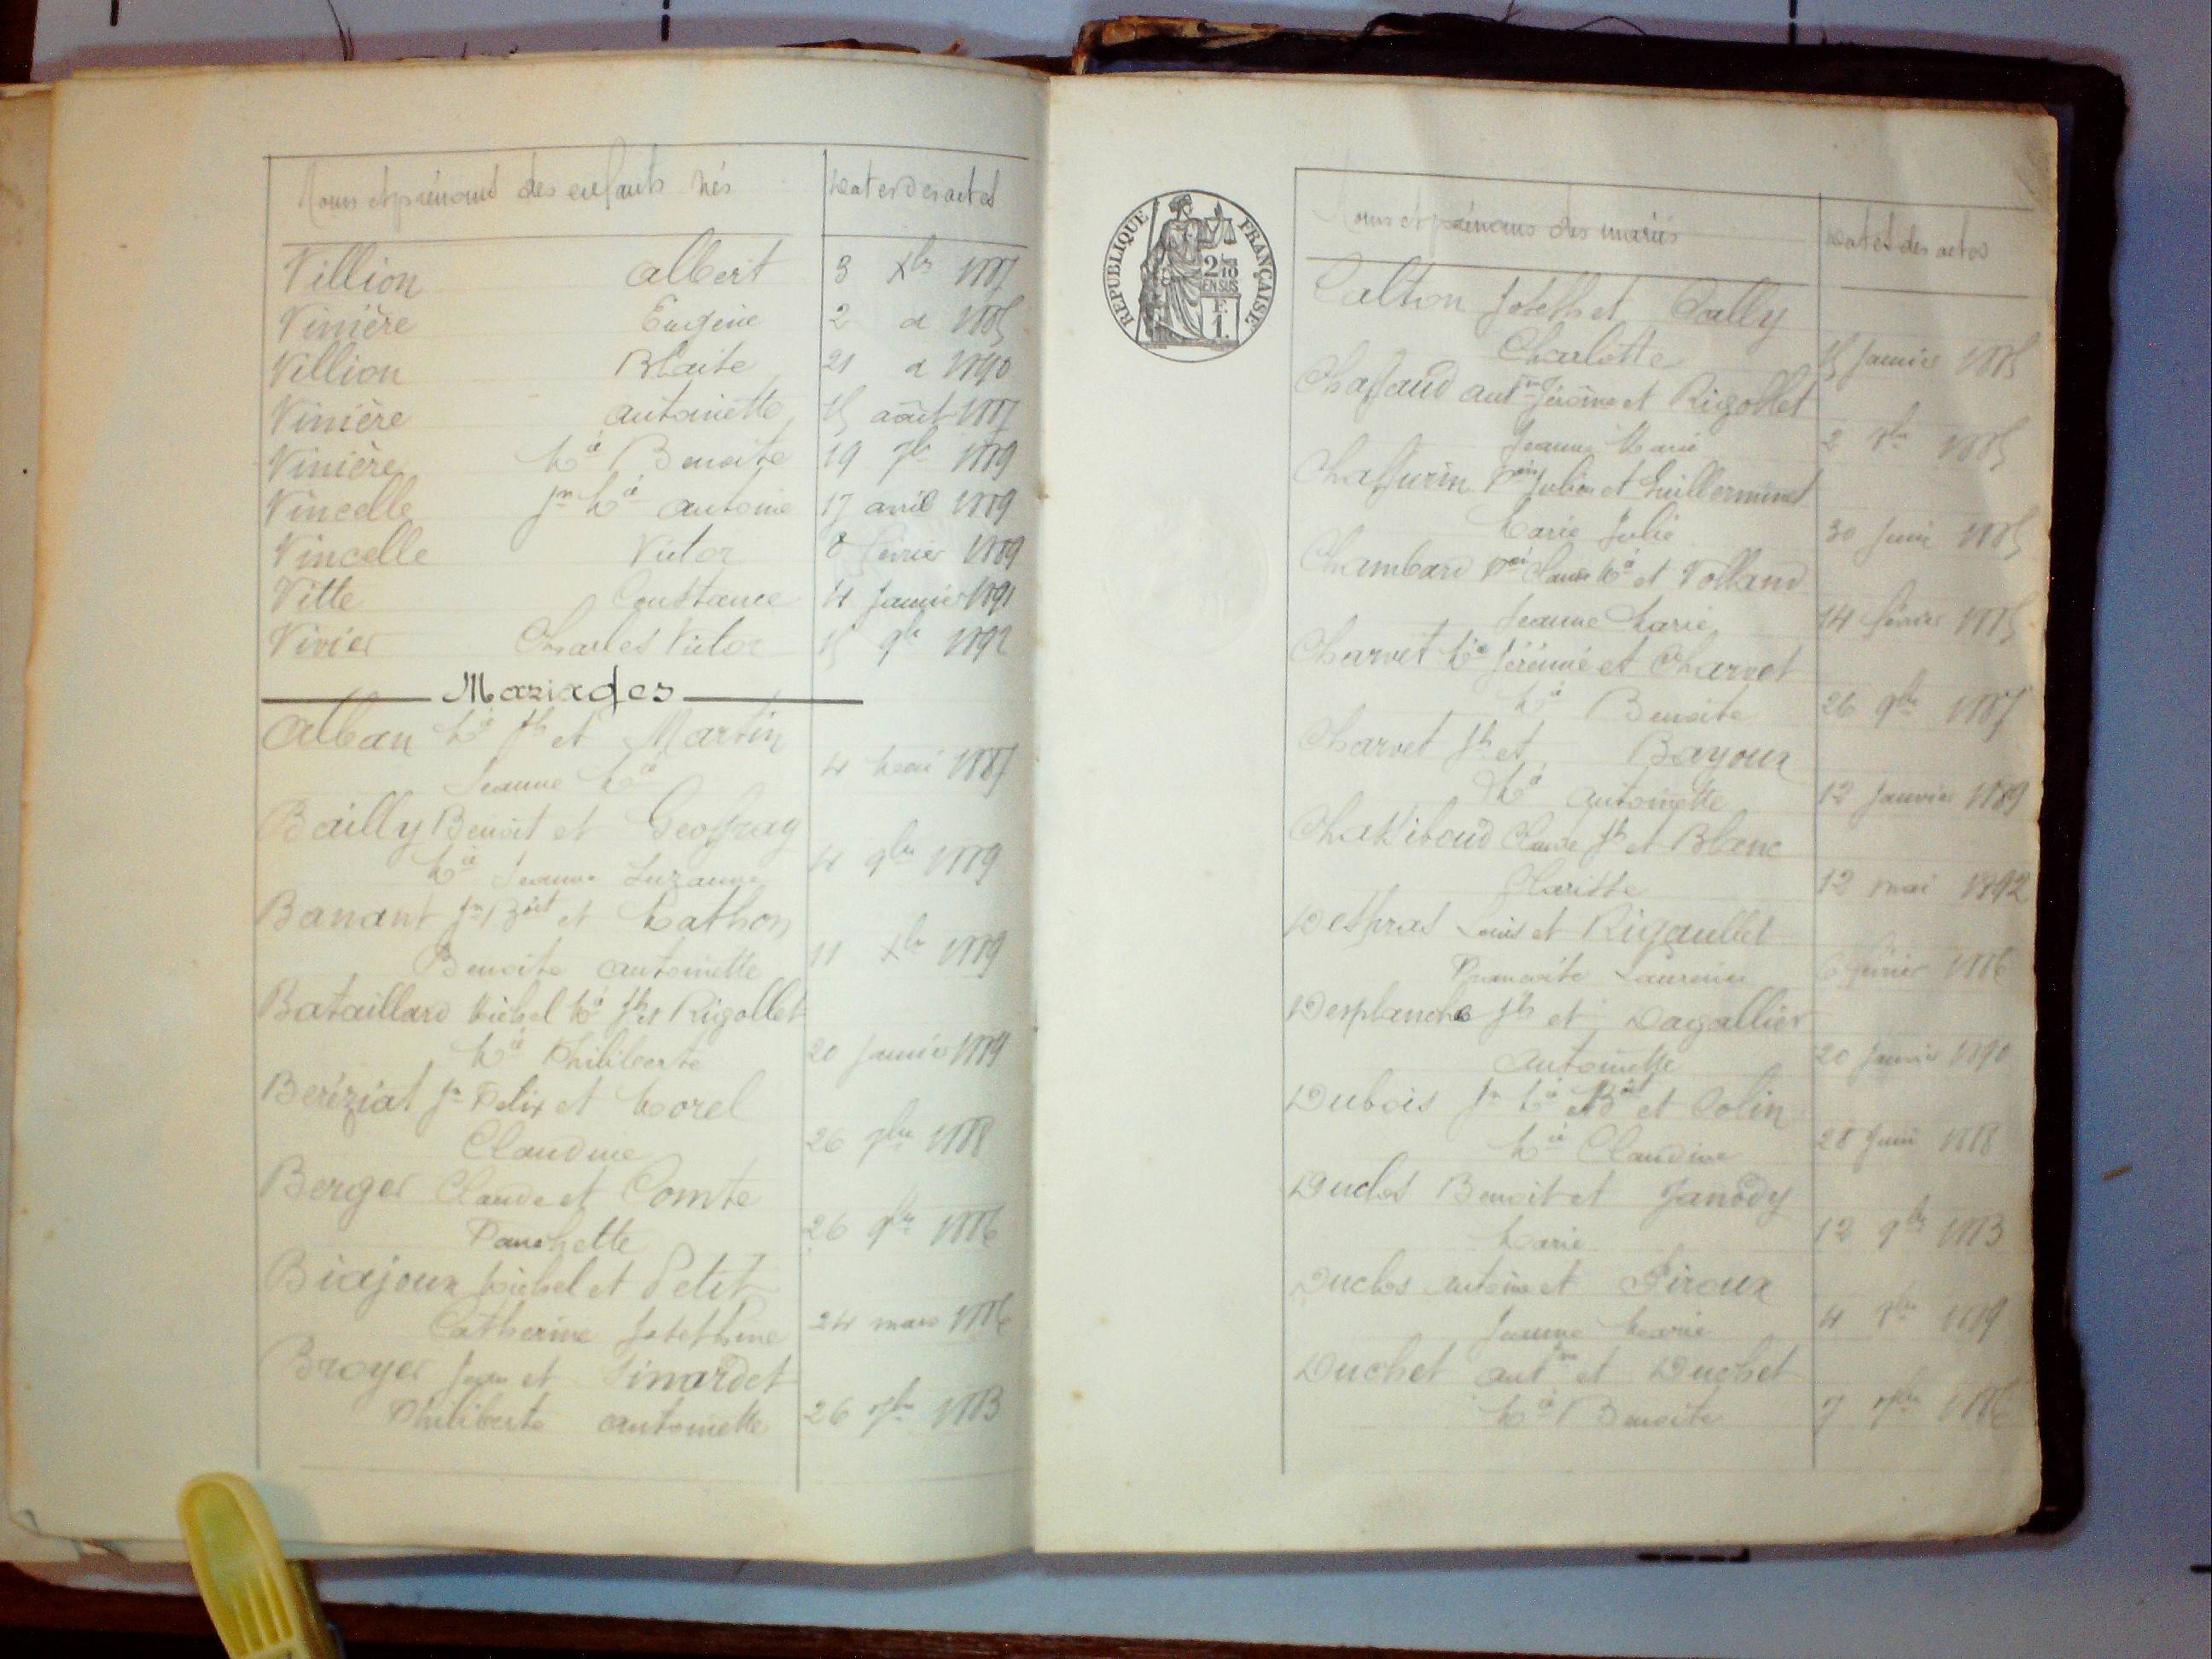 Noms et prénoms des enfants nés Dates des actes
Villion Albert 3 Xbre 1887
Vinière Eugène 2 d 1885
Villion Blaise 21 d 1890
Vinière Antoinette 15 août 1887
Vinière Mie Benoite 19 7bre 1889
Vincelle Jn Mie Antoine 17 avril 1889
Vincelle Victor 8 février 1889
Vitte Constance 4 Janvier 1891
Vivier Charles Victor 15 9bre 1892
Mariages
Alban Mie Jh et Martin
Jeanne Mie 4 Mai 1887
Bailly Benoit et Geoffray
Mie Jeanne Suzanne 4 9bre 1889
Banant Jn Boit et Mathon
Benoite Antoinette 11 Xbre 1889
Bataillard Michel Mie Jh et Rigollet
Mie Philiberte 20 Janvier 1889
Beréziat Jn Felix et Morel
Claudine 26 1888
Berger Claude et Comte
Fanchette 26 9bre 1886
Biajoux Michel et Petit
Catherine Josephine 24 mars 1886
Broyer Jean et Sinardet
Philiberte Antoinette 26 1883
RÉPUBLIQUE FRANÇAISE
2/10
EN SUS
F.
1.
Noms et prénoms des mariés Dates des actes
Calton Joseph et Cally
Charlotte 15 Janvier 1885
Chaffaud Antne Jérôme et Rigollet
Jeanne Marie 2 1885
Chaffurin Fois Julien et Guillerminet
Marie Julie 30 Juin 1885
Chambard Foi Claude Mie et Volland
Jeanne Marie 14 février 1885
Charvet Mie Jérémie et Charvet
Mie Benoite 26 9bre 1887
Charvet Jh et Bayoux
Mie Antoinette 12 Janvier 1889
Chassiboud Claude Jh et Blanc
Clarisse 12 mai 1892
Despras Louis et Rigaullet
Françoise Laurence 6 février 1886
Desplanche Jh et Dagallier
Antoinette 20 Janvier 1890
Dubois Jn Mie et Colin
Mie Claudine 28 Juin 1888
Duclos Benoit et Janody
Marie 12 9bre 1883
Duclos Antoine et Piroux
Jeanne Marie 4 1889
Duchet Antne et Duchet
Mie Benoite 7 1886